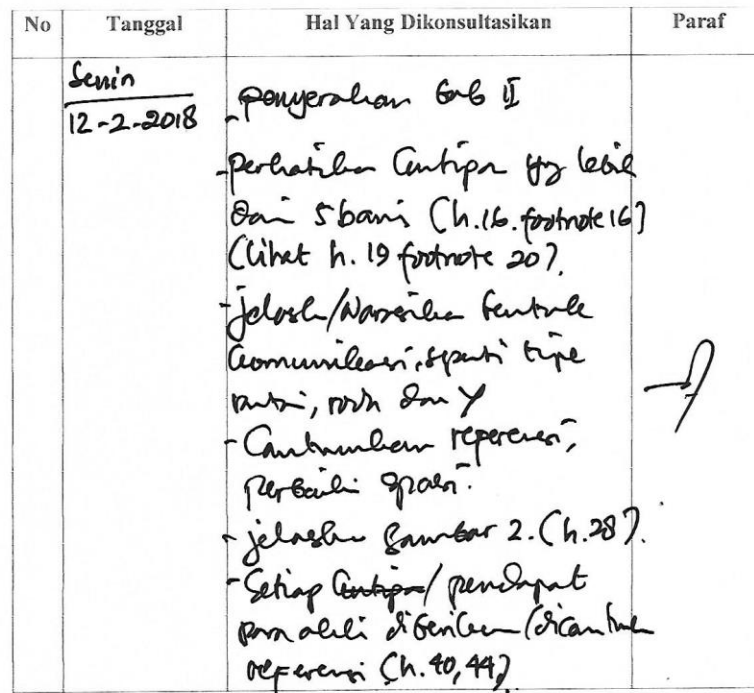 No Tanggal Hal Yang Dikonsultasikan Paraf
Senin
12-2-2018
- penyerahan Bab II
- perhatikan Cutipan yg lebih
dari 5 baris (h.16. footnote 16)
(lihat h. 19 footnote 20).
- jelaskan/Narasikan bentuk
komunikasi, seperti tipe
rantai, roda dan Y
- Cantumkan referensi,
perbaiki spasi.
- jelaskan gambar 2. (h.28).
- Setiap Cutipan/pendapat
para ahli diberikan/dicantumkan
referensi (h.40,44)